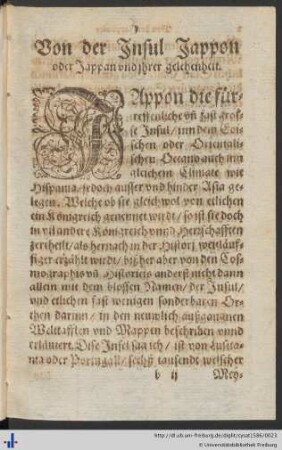 Von der Insul Jappon
oder Jappan vnd jhrer gelegenheit.
JAppon die für-
treffenliche vñ fast gros-
se Insul / inn dem Eoi-
schen oder Orientali-
schen Oceano auch inn
gleichem Climate wie
Hispania / jedoch ausser vnd hinder Asia ge-
legen. Welche ob sie gleich wol von etlichen
ein Königreich genennet wirdt / so ist sie doch
in vil andere Königreich vnnd Herrschafften
zertheilt / als hernach in der Histori weitläuf-
figer erzählt wirdt / biß her aber von den Cos-
mographis vñ Historicis anderst nicht dann
allein mit dem blossen Namen / der Insul /
vnd etlichen fast wenigen sonderbaren Or-
then darinn / in den newlich außgangnen
Welttafflen vnd Mappen beschriben vnnd
erkläuert. Dise Insel sag ich / ist von Lusita-
nia oder Portugall / sechß tausendt welscher
b ij Mey-
http://dl.ub.uni-freiburg.de/diglit/cysat1586/0023
© Universitätsbibliothek Freiburg